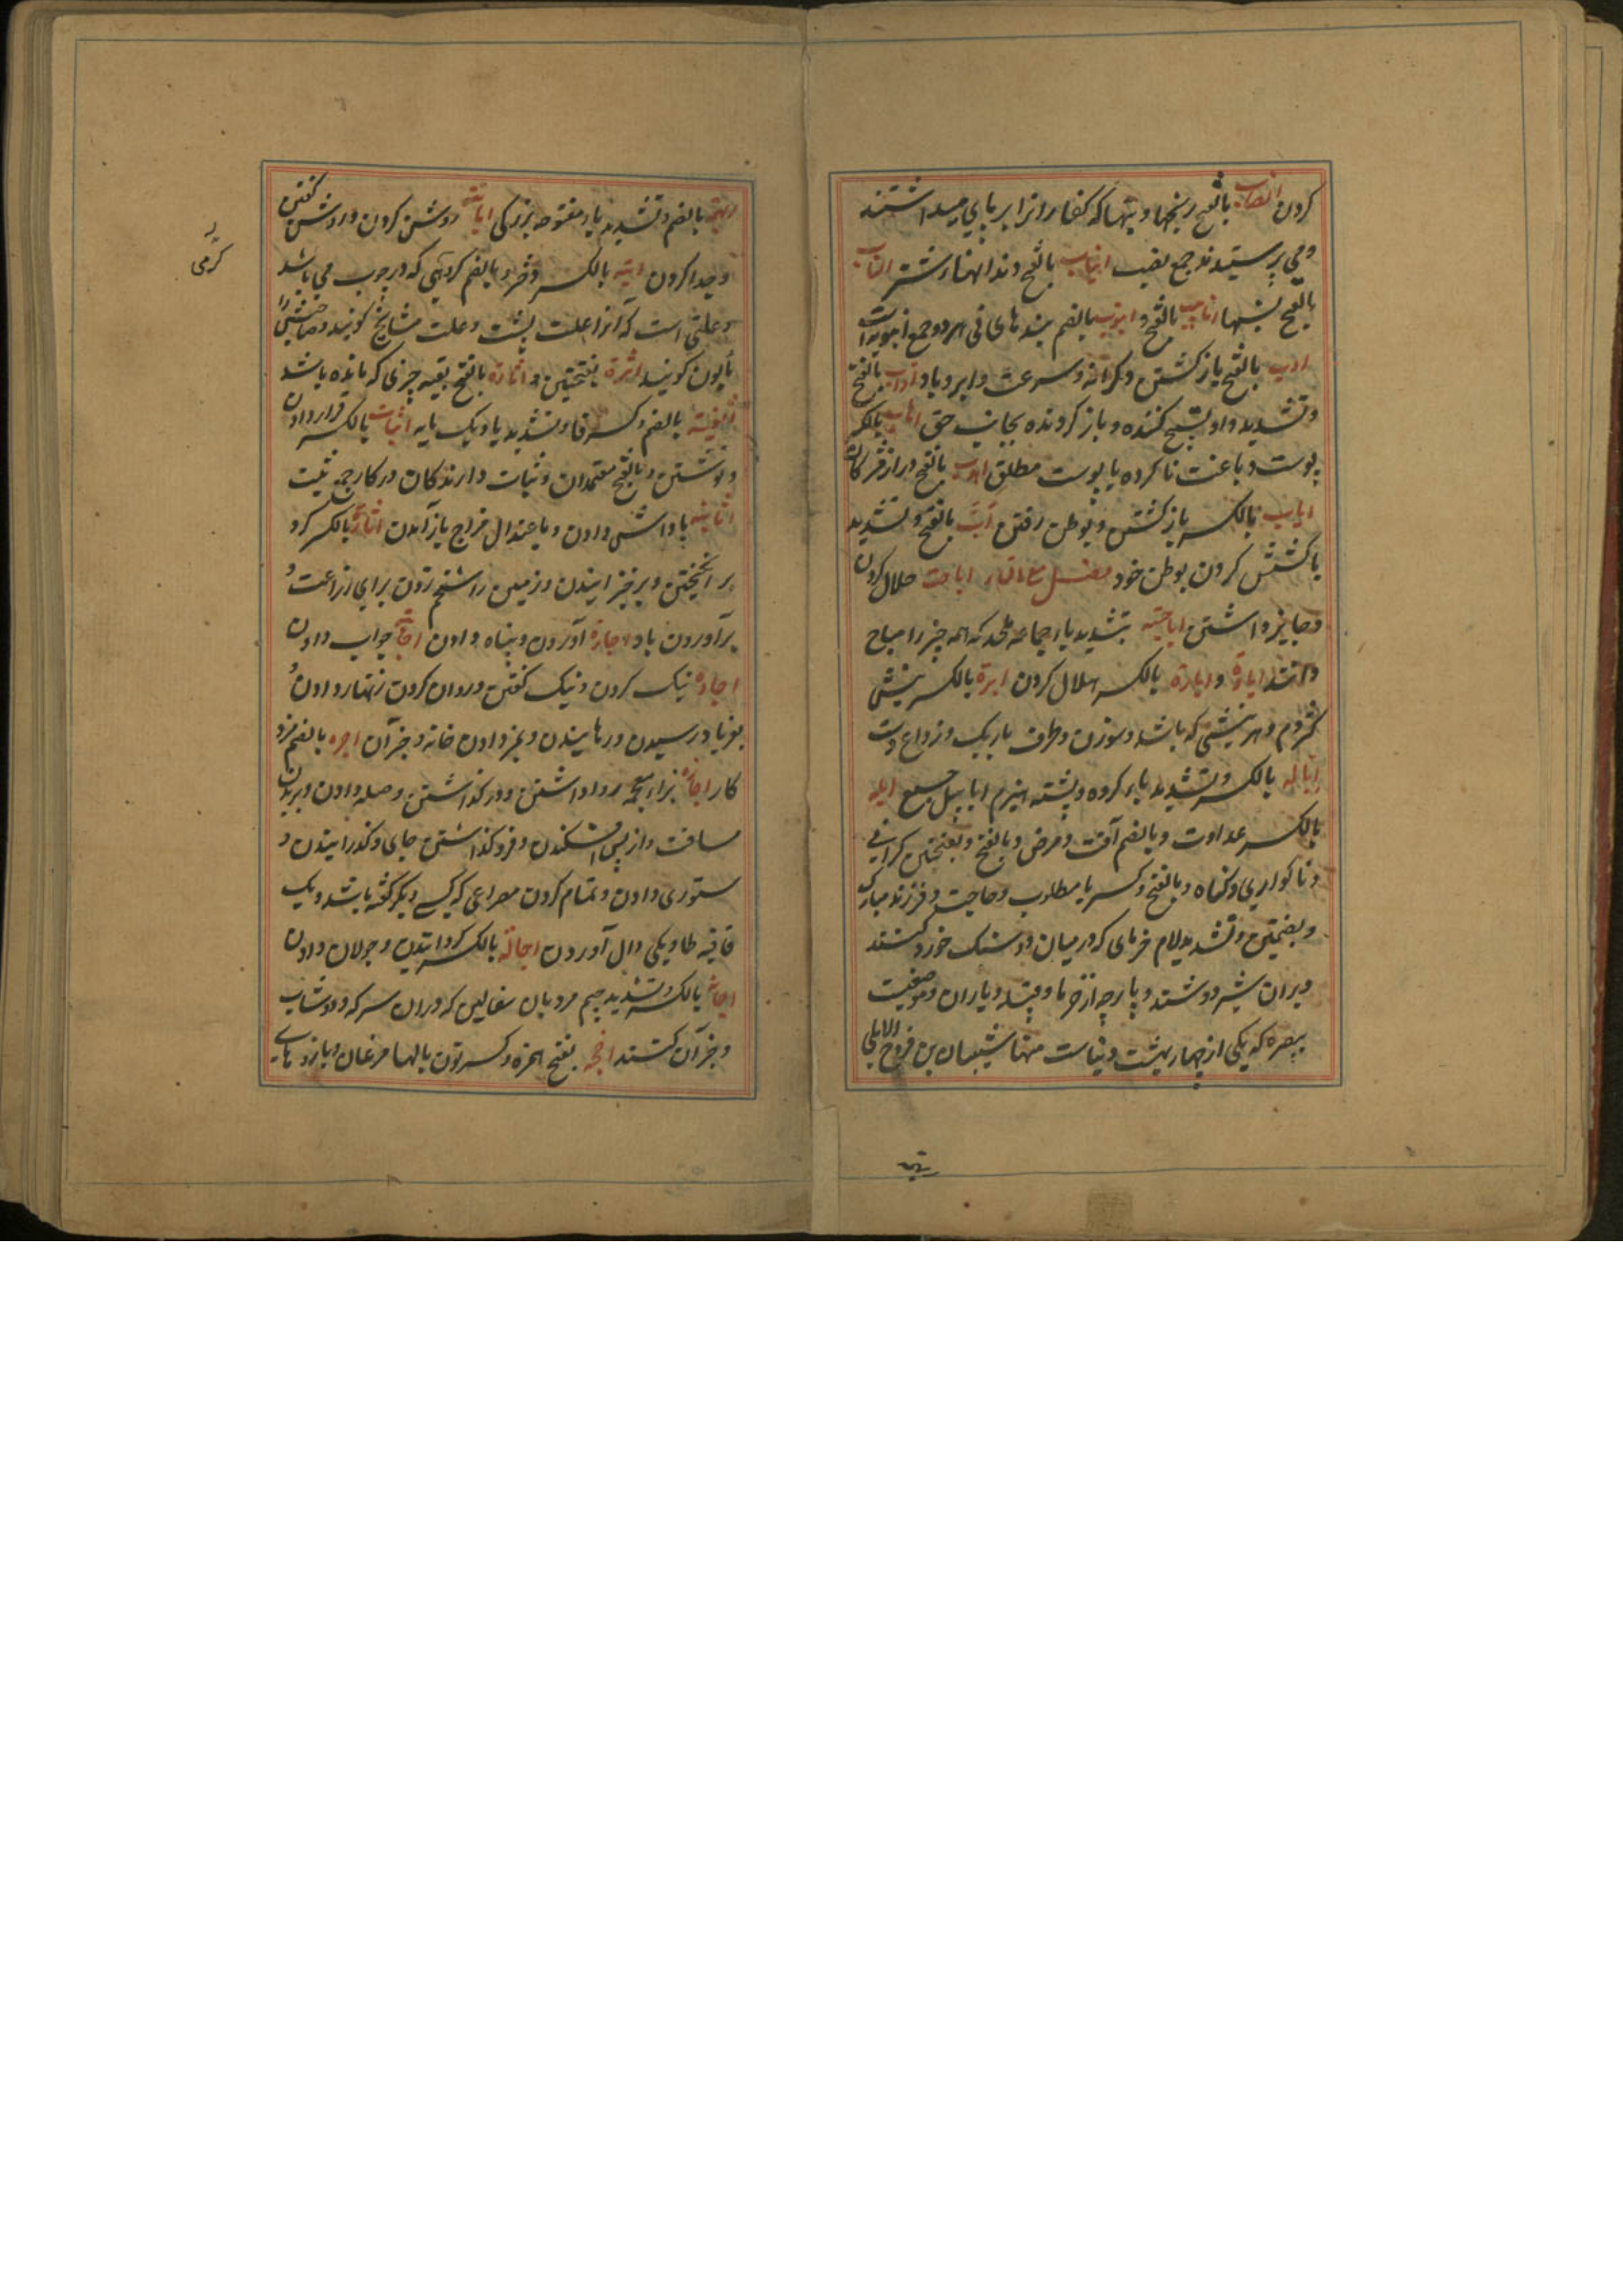 کردن انصاب بالفتح رنجها و بتها که کفار آنرا برپای میداشتند
و می پرستیدند جمع نصب انیاب بالفتح دندانهای نشتر انساب
بالفتح نسبها انابیب بالفتح و انبوب بالضم بندهای نی هر دو جمع انبوبه است
اوب بالفتح بازگشتن و کرانه و سرعت و ابر و باد اواب بالفتح
و تشدید واو تسبیح کننده و باز گردنده بجانب حق اهاب بالکسر
پوست دباغت ناکرده یا پوست مطلق اهدب بالفتح دراز مژگان
ایاب بالکسر بازگشتن و بوطن رفتن أبّ بالفتح و تشدید با
کشش کردن بوطن خود فصل مع التاء اباحت حلال کردن
و جایز داشتن اباحتیه بتشدید یا جماعه ملحد که همه چیز را مباح
دانند ابارة و اباره بالکسر هلال کردن ابرة بالکسر نیشی
کژدم و هر نیشی که باشد و سوزن و طرف باریک ذراع دست
ابّاله بالکسر و تشدید باء کروه و پشته هیزم ابابیل جمع ابله
بالکسر عداوت و بالضم آفت و مرض و بالفتح و بفتحتین گرانی
و ناکواری و کناه و بالفتح و کسر با مطلوب و حاجت و فرزند مبارک
و بضمتین و تشدید لام خرمای که در میان دو سنگ خورد کنند
و بران شیر دوشند و پارچه از خرما و قبیله و یاران و موضعیست
ببصره که یکی از چهار بهشت دنیاست منها شیبان بن فروخ الابلی
ابهة بالضم و تشدید باء مفتوحه بزرگی ابانة روشن کردن و روشن گفتن
و جدا کردن ابنه بالکسر و بالضم کرهی که در چوب می باشد
و علتی است که آنرا علت پشت و علت مشایخ کویند و صاحبش را
مأبون کویند اثرة بفتحتین و اثارة بالفتح بقیه چیزی که مانده باشد
اثفیة بالضم و کسر فا و تشدید یا دیک پایه اثبات بالکسر قرار دادن
و نوشتن و بالفتح معتمدان و ثبات دارندگان در کار جمع ثبت
اثابه پاداش دادن و باعتدال مزاج بازآمدن اثارة بالکسر گرد
برانگیختن و برخیزانیدن و زمین را شخم زدن برای زراعت و
برآوردن باد اجاره آوردن و پناه دادن اجابة جواب دادن
اجاده نیک کردن و نیک گفتن و روان کردن زنهار دادن و
بفریاد رسیدن و رهانیدن و بمزد دادن خانه و جز آن اجره بالضم مزد
کار اجازه بزاء معجمه روا داشتن و در گذاشتن و صله دادن و بریدن
مسافت و از پس افکندن و فرو گذاشتن جای و گذرانیدن و
ستوری دادن و تمام کردن مصراعی که کسی دیگر گفته باشد و یک
قافیه طا و یکی دال آوردن اجاله بالکسر گردانیدن و جولان دادن
اجانه بالکسر و تشدید جیم مردبان سفالین که در آن سرکه و دوشاب
و جز آن کنند اجنحه بفتح همزه و کسر نون بالهای مرغان و بازوهای
کرمی